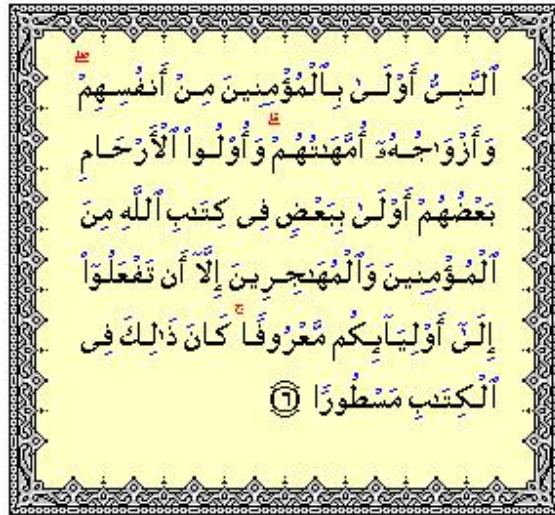 ٱلنَّبِىُّ أَوْلَىٰ بِٱلْمُؤْمِنِينَ مِنْ أَنفُسِهِمْ ۖ
وَأَزْوَٰجُهُۥٓ أُمَّهَـٰتُهُمْ ۗ وَأُو۟لُوا۟ ٱلْأَرْحَامِ
بَعْضُهُمْ أَوْلَىٰ بِبَعْضٍ فِى كِتَـٰبِ ٱللَّهِ مِنَ
ٱلْمُؤْمِنِينَ وَٱلْمُهَـٰجِرِينَ إِلَّآ أَن تَفْعَلُوٓا۟
إِلَىٰٓ أَوْلِيَآئِكُم مَّعْرُوفًا ۚ كَانَ ذَٰلِكَ فِى
ٱلْكِتَـٰبِ مَسْطُورًا ٦